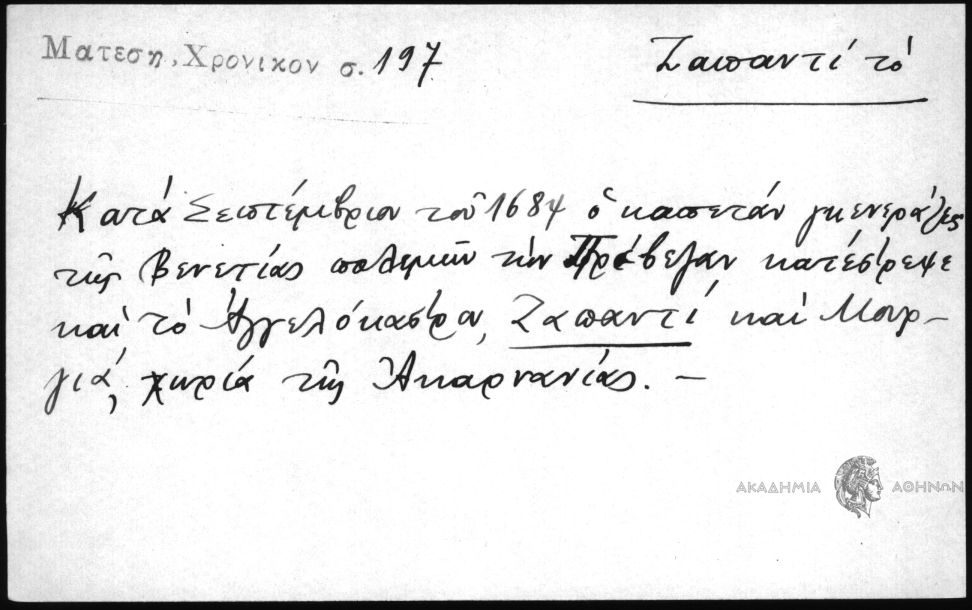 Ματεση, Χρονικον σ. 197
Ζαπαντί τὸ
Κατά Σεπτέμβριον τοῦ 1684 ὁ καπετάν γκενεράλες
τῆς Βενετίας πολεμῶν τὴν Πρέβεζαν κατέστρεψε
καὶ τὸ Ἀγγελόκαστρον, Ζαπαντί καὶ Μουρ-
γιά, χωρία τῆς Ἀκαρνανίας. –
ΑΚΑΔΗΜΙΑ ΑΘΗΝΩΝ